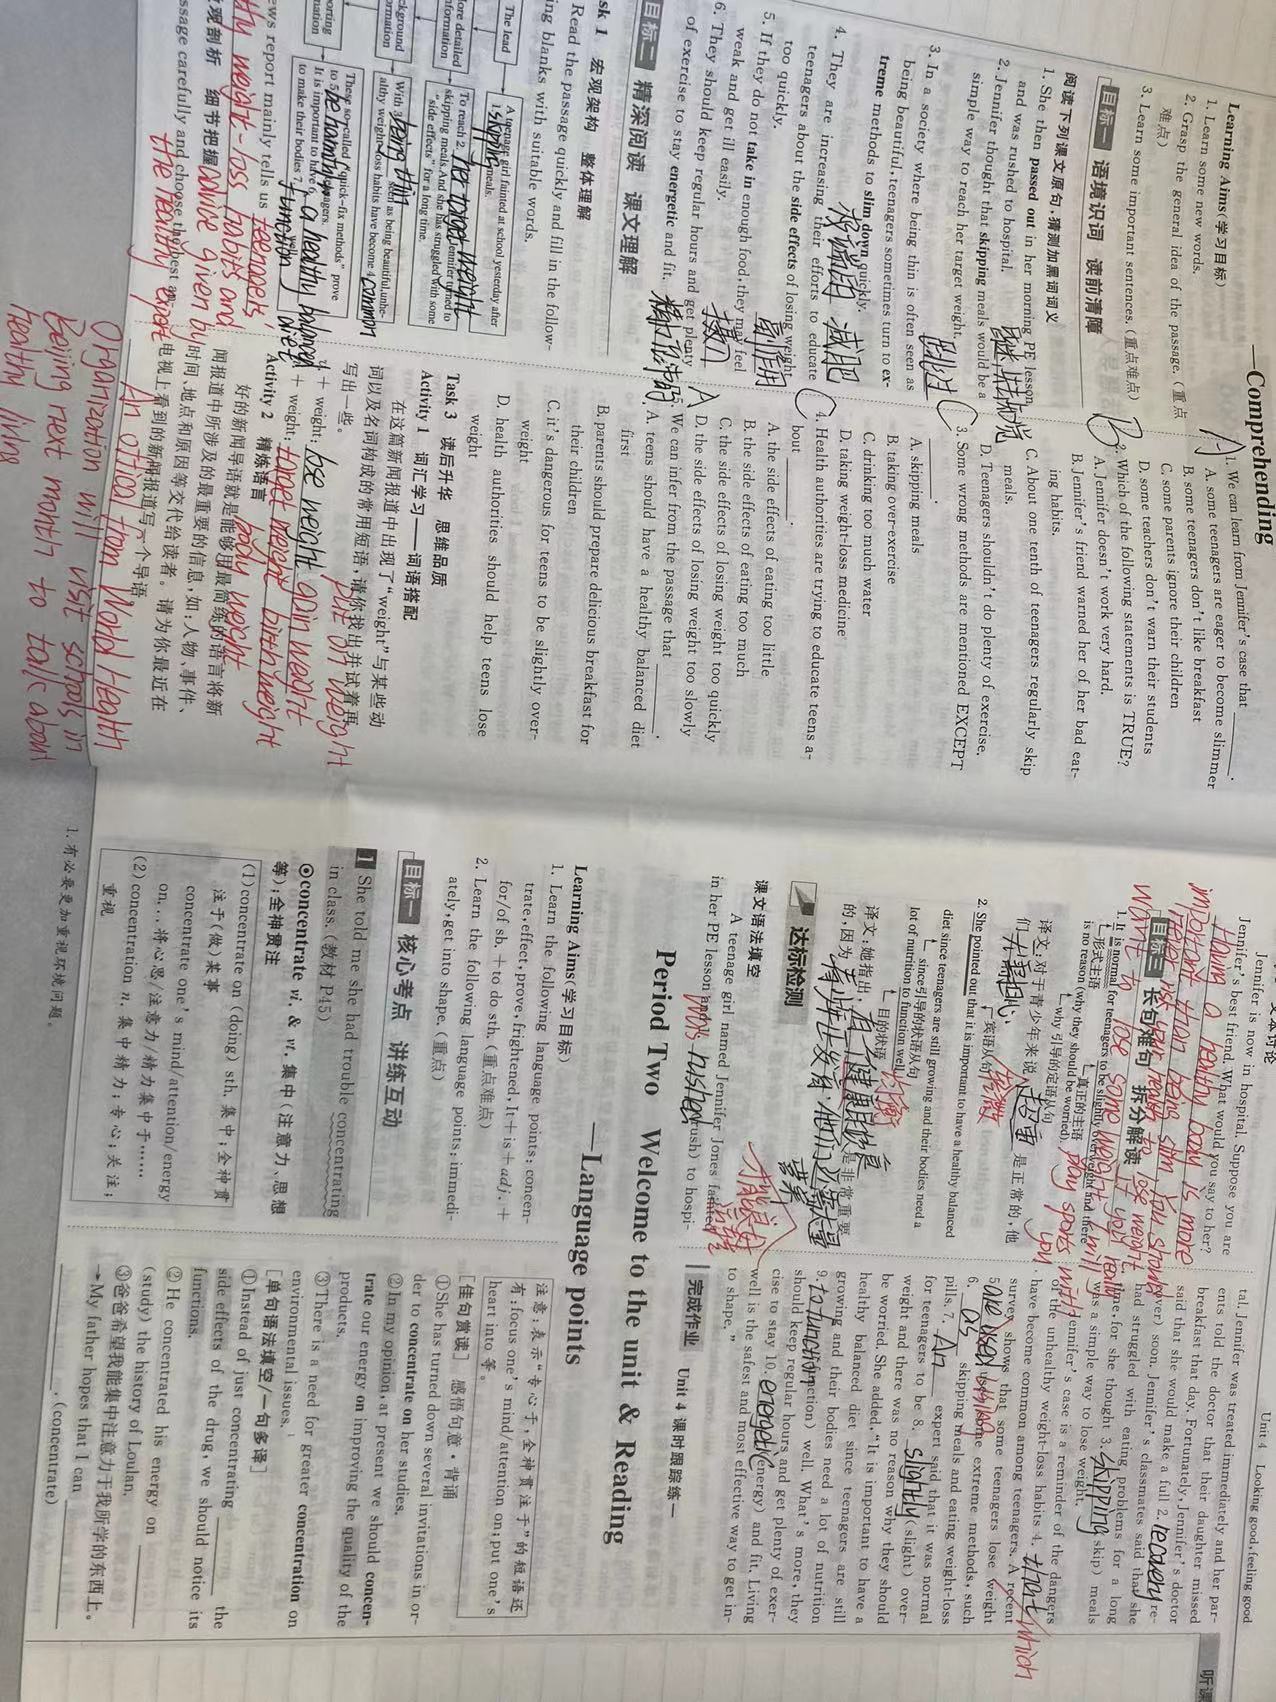 —Comprehending
Learning Aims(学习目标)
1. Learn some new words.
2. Grasp the general idea of the passage. (重点
难点)
3. Learn some important sentences. (重点难点)
目标一 语境识词 读前清障
阅读下列课文原句,猜测加黑词词义
1. She then passed out in her morning PE lesson
and was rushed to hospital.
2. Jennifer thought that skipping meals would be a
simple way to reach her target weight.
3. In a society where being thin is often seen as
being beautiful, teenagers sometimes turn to ex-
treme methods to slim down quickly.
减肥
4. They are increasing their efforts to educate
teenagers about the side effects of losing weight
too quickly.
副作用
5. If they do not take in enough food, they may feel
weak and get ill easily.
摄入
6. They should keep regular hours and get plenty
of exercise to stay energetic and fit.
目标二 精深阅读 课文理解
sk 1 宏观架构 整体理解
Read the passage quickly and fill in the follow-
ing blanks with suitable words.
The lead
A teenage girl fainted at school yesterday after
1. skipping meals.
ore detailed
nformation
To reach 2. her target weight, Jennifer turned to
skipping meals. And she has struggled with some
"side effects" for a long time.
ckground
ormation
With 3. being thin seen as being beautiful, unhe-
althy weight-loss habits have become 4. common
porting
mation
These so-called "quick-fix methods" prove
to 5. be harmful teenagers.
It is important to have 6. a healthy balanced diet
to make their bodies 7. function well.
ews report mainly tells us teenagers'
thy weight-loss habits and
advice given by
the healthy expert
观剖析 细节把握
ssage carefully and choose the best an-
A
1. We can learn from Jennifer's case that ______.
A. some teenagers are eager to become slimmer
B. some teenagers don't like breakfast
C. some parents ignore their children
D. some teachers don't warn their students
B
2. Which of the following statements is TRUE?
A. Jennifer doesn't work very hard.
B. Jennifer's friend warned her of her bad eat-
ing habits.
C. About one tenth of teenagers regularly skip
meals.
D. Teenagers shouldn't do plenty of exercise.
C
3. Some wrong methods are mentioned EXCEPT
______.
A. skipping meals
B. taking over-exercise
C. drinking too much water
D. taking weight-loss medicine
C
4. Health authorities are trying to educate teens a-
bout ______.
A. the side effects of eating too little
B. the side effects of eating too much
C. the side effects of losing weight too quickly
D. the side effects of losing weight too slowly
A
5. We can infer from the passage that ______.
A. teens should have a healthy balanced diet
first
B. parents should prepare delicious breakfast for
their children
C. it's dangerous for teens to be slightly over-
weight
D. health authorities should help teens lose
weight
Task 3 读后升华 思维品质
Activity 1 词汇学习——词语搭配
在这篇新闻报道中出现了“weight”与某些动
词以及名词构成的常用短语,请你找出并试着再
写出一些。
+ weight: lose weight gain weight put on weight
+ weight: target weight birth weight
body weight
Activity 2 精炼语言
好的新闻导语就是能够用最简练的语言将新
闻报道中所涉及的最重要的信息,如:人物、事件、
时间、地点和原因等交代给读者。请为你最近在
电视上看到的新闻报道写一个导语。
An official from World Health
Organization will visit schools in
Beijing next month to talk about
healthy living
Unit 4 Looking good, feeling good
听课
Jennifer is now in hospital. Suppose you are
Jennifer's best friend. What would you say to her?
Having a healthy body is more
important than being slim. You should
If you really
want to lose some weight, I will
play sports with you
目标三 长句难句 拆分解读
1. It is normal for teenagers to be slightly overweight and there
形式主语
真正的主语
is no reason (why they should be worried).
why 引导的定语从句
译文:对于青少年来说,超重是正常的,他
们不需担心
2. She pointed out that it is important to have a healthy balanced
宾语从句
diet since teenagers are still growing and their bodies need a
since引导的状语从句
lot of nutrition to function well.
目的状语
译文:她指出,有个健康的饮食是非常重要
的,因为青少年正发育,他们必需大量
达标检测
课文语法填空
A teenage girl named Jennifer Jones fainted
in her PE lesson and was rushed (rush) to hospi-
tal. Jennifer was treated immediately and her par-
ents told the doctor that their daughter missed
breakfast that day. Fortunately, Jennifer's doctor
said that she would make a full 2. recovery (re-
cover) soon. Jennifer's classmates said that she
had struggled with eating problems for a long
time, for she thought 3. skipping (skip) meals
was a simple way to lose weight.
Jennifer's case is a reminder of the dangers
of the unhealthy weight-loss habits 4. that/which
have become common among teenagers. A recent
survey shows that some teenagers lose weight
6. as skipping meals and eating weight-loss
pills. 7. An expert said that it was normal
for teenagers to be 8. slightly (slight) over-
weight and there was no reason why they should
be worried. She added, "It is important to have a
healthy balanced diet since teenagers are still
growing and their bodies need a lot of nutrition
9. to function (function) well. What's more, they
should keep regular hours and get plenty of exer-
cise to stay 10. energetic (energy) and fit. Living
well is the safest and most effective way to get in-
to shape."
完成作业 Unit 4 课时跟踪练一
Period Two Welcome to the unit & Reading
—Language points
Learning Aims(学习目标)
1. Learn the following language points: concen-
trate, effect, prove, frightened, It + is + adj. +
for/of sb. + to do sth. (重点难点)
2. Learn the following language points: immedi-
ately, get into shape. (重点)
目标一 核心考点 讲练互动
1 She told me she had trouble concentrating
in class. (教材 P45)
⊙concentrate vi. & vt. 集中(注意力、思想
等);全神贯注
(1)concentrate on (doing) sth. 集中;全神贯
注于(做)某事
concentrate one's mind/attention/energy
on...将心思/注意力/精力集中于……
(2)concentration n. 集中精力;专心;关注;
重视
1. 有必要更加重视环境问题。
注意:表示“专心于,全神贯注于”的短语还
有:focus one's mind/attention on;put one's
heart into 等。
[佳句赏读] 感悟句意·背诵
①She has turned down several invitations in or-
der to concentrate on her studies.
②In my opinion, at present we should concen-
trate our energy on improving the quality of the
products.
③There is a need for greater concentration on
environmental issues.1
[单句语法填空/一句多译]
①Instead of just concentrating ______ the
side effects of the drug, we should notice its
functions.
②He concentrated his energy on ______
(study) the history of Loulan.
③爸爸希望我能集中注意力于我所学的东西上。
→My father hopes that I can ______
______. (concentrate)